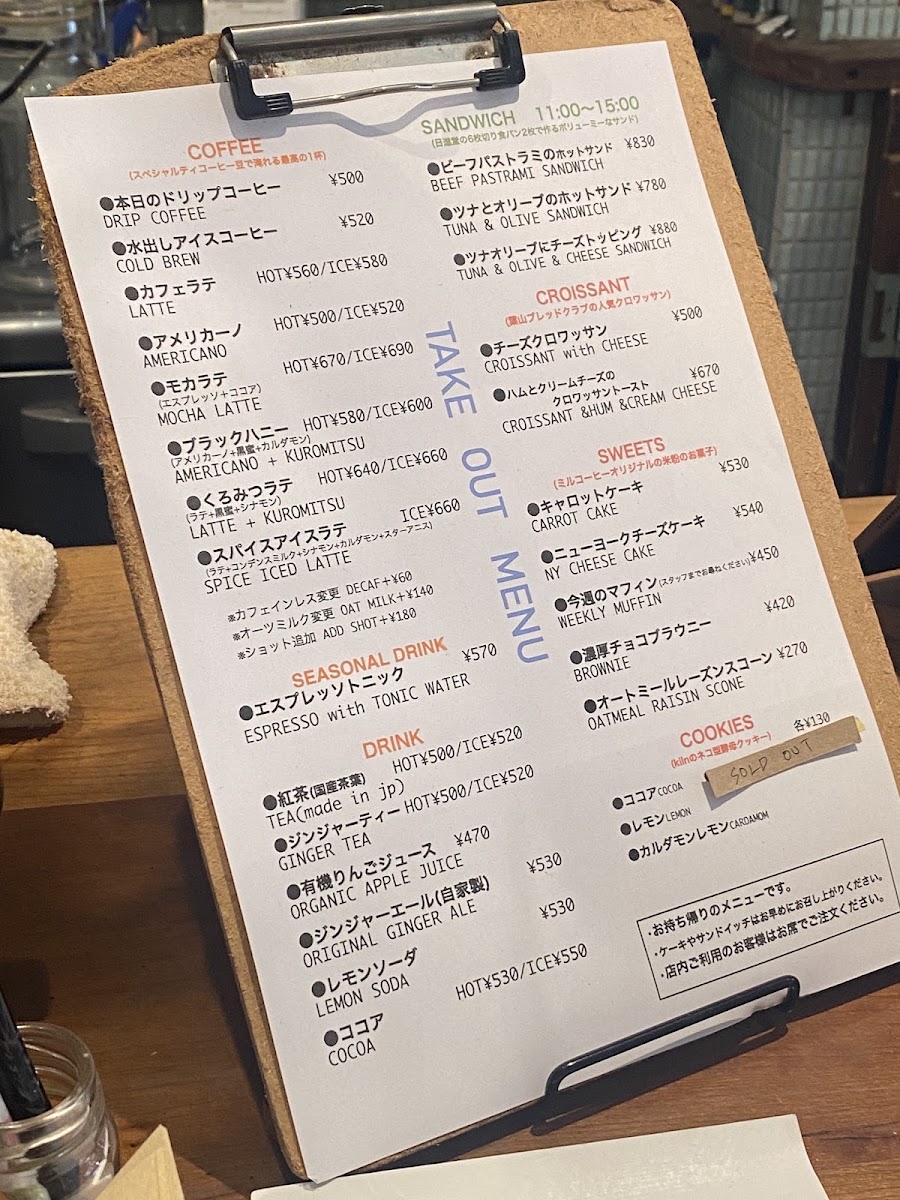 COFFEE
(スペシャルティコーヒー豆で淹れる最高の1杯)
●本日のドリップコーヒー ¥500
DRIP COFFEE
●水出しアイスコーヒー ¥520
COLD BREW
●カフェラテ HOT¥560/ICE¥580
LATTE
●アメリカーノ HOT¥500/ICE¥520
AMERICANO
●モカラテ HOT¥670/ICE¥690
(エスプレッソ+ココア)
MOCHA LATTE
●ブラックハニー HOT¥580/ICE¥600
(アメリカーノ+黒蜜+カルダモン)
AMERICANO + KUROMITSU
●くろみつラテ HOT¥640/ICE¥660
(ラテ+黒蜜+シナモン)
LATTE + KUROMITSU
●スパイスアイスラテ ICE¥660
(ラテ+コンデンスミルク+シナモン+カルダモン+スターアニス)
SPICE ICED LATTE
※カフェインレス変更 DECAF+¥60
※オーツミルク変更 OAT MILK+¥140
※ショット追加 ADD SHOT+¥180
SEASONAL DRINK
●エスプレッソトニック ¥570
ESPRESSO with TONIC WATER
DRINK
●紅茶(国産茶葉) HOT¥500/ICE¥520
TEA(made in jp)
●ジンジャーティー HOT¥500/ICE¥520
GINGER TEA
●有機りんごジュース ¥470
ORGANIC APPLE JUICE
●ジンジャーエール(自家製) ¥530
ORIGINAL GINGER ALE
●レモンソーダ ¥530
LEMON SODA
●ココア HOT¥530/ICE¥550
COCOA
TAKE OUT MENU
SANDWICH 11:00〜15:00
(日進堂の6枚切り食パン2枚で作るボリューミーなサンド)
●ビーフパストラミのホットサンド ¥830
BEEF PASTRAMI SANDWICH
●ツナとオリーブのホットサンド ¥780
TUNA & OLIVE SANDWICH
●ツナオリーブにチーズトッピング ¥880
TUNA & OLIVE & CHEESE SANDWICH
CROISSANT
(葉山ブレッドクラブの人気クロワッサン)
●チーズクロワッサン ¥500
CROISSANT with CHEESE
●ハムとクリームチーズの
クロワッサントースト ¥670
CROISSANT &HUM &CREAM CHEESE
SWEETS
(ミルコーヒーオリジナルの米粉のお菓子)
●キャロットケーキ ¥530
CARROT CAKE
●ニューヨークチーズケーキ ¥540
NY CHEESE CAKE
●今週のマフィン(スタッフまでお尋ねください)¥450
WEEKLY MUFFIN
●濃厚チョコブラウニー ¥420
BROWNIE
●オートミールレーズンスコーン ¥270
OATMEAL RAISIN SCONE
COOKIES 各¥130
(kilnのネコ型酵母クッキー)
SOLD OUT
●ココアCOCOA
●レモンLEMON
●カルダモンレモンCARDAMOM
・お持ち帰りのメニューです。
・ケーキやサンドイッチはお早めにお召し上がりください。
・店内ご利用のお客様はお席でご注文ください。